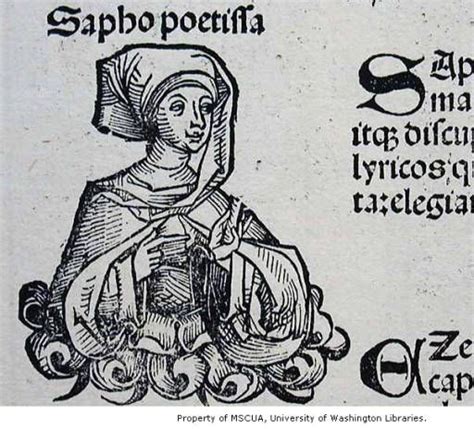 Sapho poetissa
Sap
ma
itqꝫ discup
lyricos: q
ta: elegia
Ze
cap
Property of MSCUA, University of Washington Libraries.